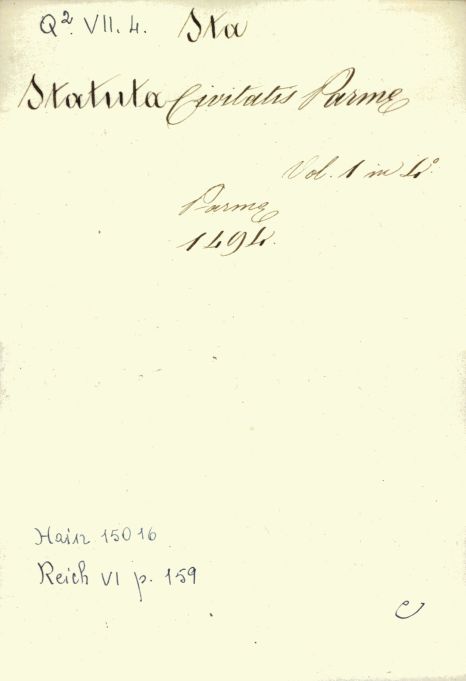 Q². VII. 4. Sta
Statuta Civitatis Parmę
Vol. 1 in 4.º
Parmę
1494.
Hain 15016
Reich VI p. 159